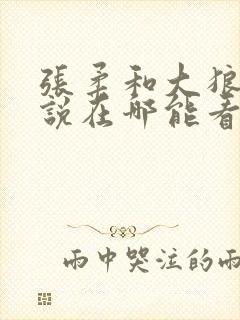 張柔和大狼
說在哪能看
雨中哭注的雨